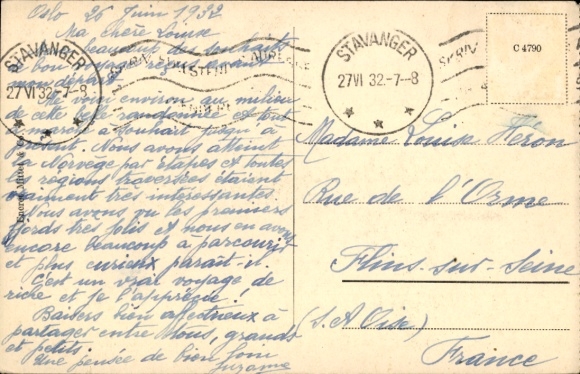 Oslo 26 Juin 1932
Ma chère Louise
beaucoup des souhaits
de bon voyage
mon départ.
Me voici environ au milieu
de cette randonnée et tout
a marché à souhait jusqu'à
présent. Nous avons atteint
la Norvège par étapes et toutes
les régions traversées étaient
vraiment très intéressantes.
Nous avons vu les premiers
fjords très jolis et nous en avons
encore beaucoup à parcourir
et plus curieux paraît-il.
C'est un vrai voyage de
riche et je l'apprécie!
Baisers bien affectueux à
partager entre tous, grands
et petits.
Une pensée de bien loin
Suzanne
STAVANGER
27 VI 32.-7--8
STAVANGER
27 VI 32.-7--8
C 4790
Madame Louise Heron
Rue de l'Orme
Flins-sur-Seine
(S. & Oise)
France